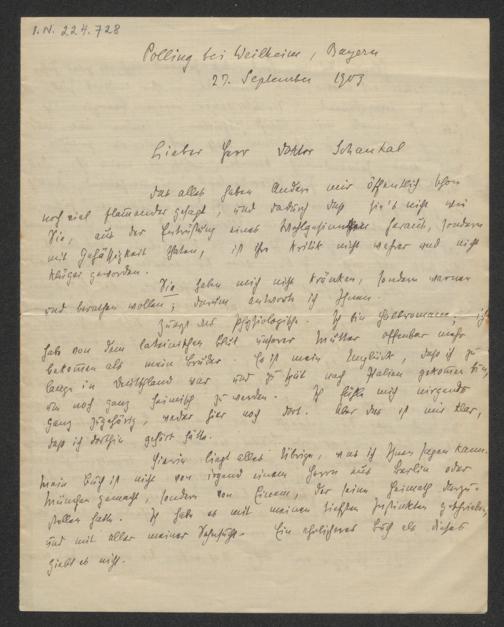 I. N. 224.728
Polling bei Weilheim, Bayern
27. September 1909
Lieber Herr Doktor Schaukal
Das alles haben Andere mir öffentlich schon
noch viel flammender gesagt, und dadurch daß sie's nicht wie
Sie, aus der Entrüstung eines Wohlgesinnten heraus, sondern
mit Gehässigkeit thaten, ist ihre Kritik nicht wahrer und nicht
klüger geworden.
Sie haben mich nicht kränken, sondern warnen
und berathen wollen; darum antworte ich Ihnen.
Zuerst das Physiologische. Ich bin Halbromane, ich
hab von dem lateinischen Blut unserer Mutter offenbar mehr
bekommen als mein Bruder. Es ist mein Unglück, daß ich zu
lange in Deutschland war und zu spät nach Italien gekommen bin,
um noch ganz heimisch zu werden. Ich fühle mich nirgends
ganz zugehörig, weder hier noch dort. Aber das ist mir klar,
daß ich dorthin gehört hätte.
Hierin liegt alles Übrige, was ich Ihnen sagen kann.
Mein Buch ist nicht von irgend einem Herrn aus Berlin oder
München gemacht, sondern von Einem, der seine Heimath
stellen hatte. Ich hab es mit meinen tiefsten Instinkten geschrieben,
und mit aller meiner Sehnsucht. Ein ehrlicheres Buch als dieses
giebt es nicht.